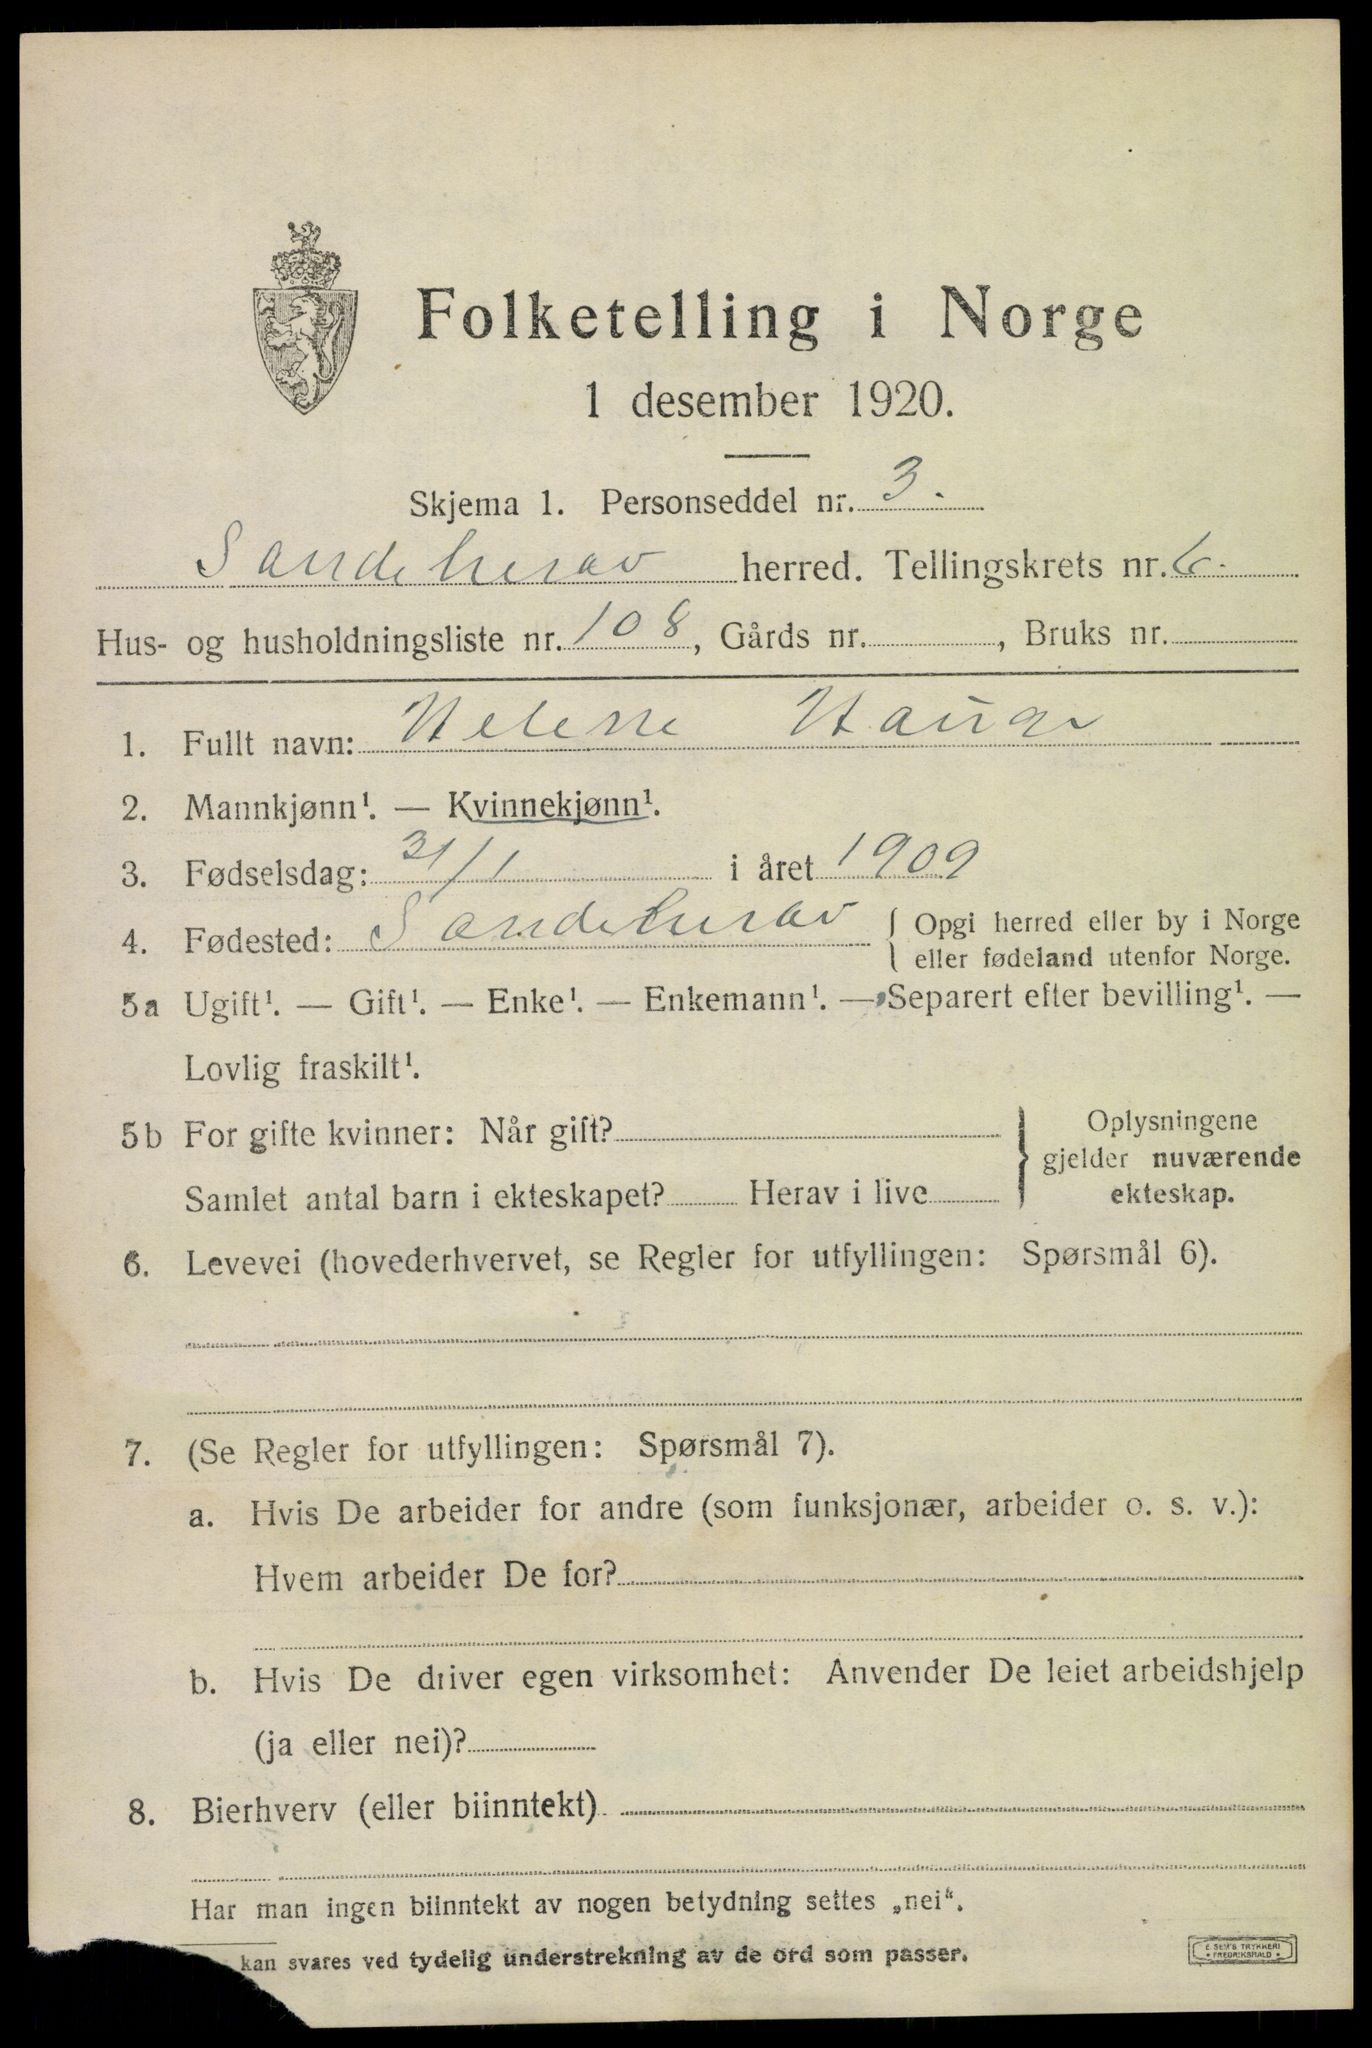 Folketelling i Norge
1 desember 1920.
Skjema 1. Personseddel nr. 3.
Sandeherav herred. Tellingskrets nr. 6.
Hus- og husholdningsliste nr. 108, Gårds nr. , Bruks nr.
1. Fullt navn: Helene Hauge
2. Mannkjønn¹. — Kvinnekjønn¹.
3. Fødselsdag: 31/1 i året 1909
4. Fødested: Sandeherav { Opgi herred eller by i Norge
eller fødeland utenfor Norge.
5a Ugift¹. — Gift¹. — Enke¹. — Enkemann¹. — Separert efter bevilling¹. —
Lovlig fraskilt¹.
5b For gifte kvinner: Når gift?
Samlet antal barn i ekteskapet? Herav i live
} Oplysningene
gjelder nuværende
ekteskap.
6. Levevei (hovederhvervet, se Regler for utfyllingen: Spørsmål 6).
7. (Se Regler for utfyllingen: Spørsmål 7).
a. Hvis De arbeider for andre (som funksjonær, arbeider o. s. v.):
Hvem arbeider De for?
b. Hvis De driver egen virksomhet: Anvender De leiet arbeidshjelp
(ja eller nei)?
8. Bierhverv (eller biinntekt)
Har man ingen biinntekt av nogen betydning settes „nei“.
kan svares ved tydelig understrekning av de ord som passer.
E. SEM'S TRYKKERI
FREDRIKSHALD